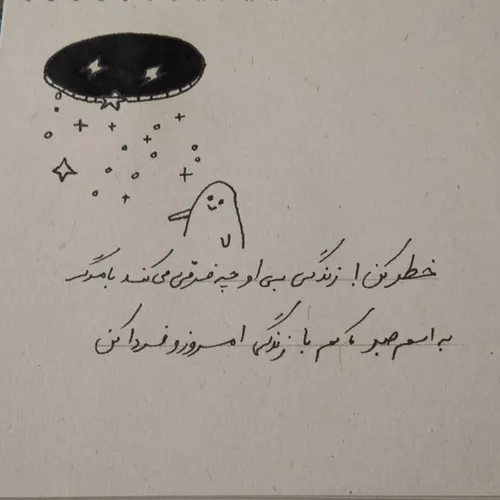 خطر کن! زندگی بی او چه فرقی می کند با مرگ
به اسم صبر کم با زندگی امروز و فردا کن